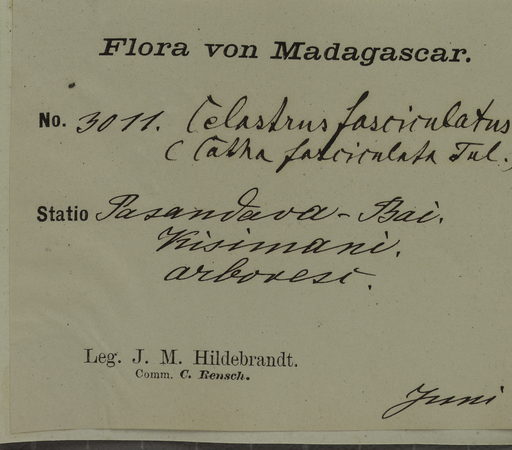 Flora von Madagascar.
No. 3011. Celastrus fasciculatus
(Catha fasciculata Tul.)
Statio Pasandava-Bai.
Kisimani.
arboresc.
Leg. J. M. Hildebrandt.
Comm. C. Rensch.
Juni